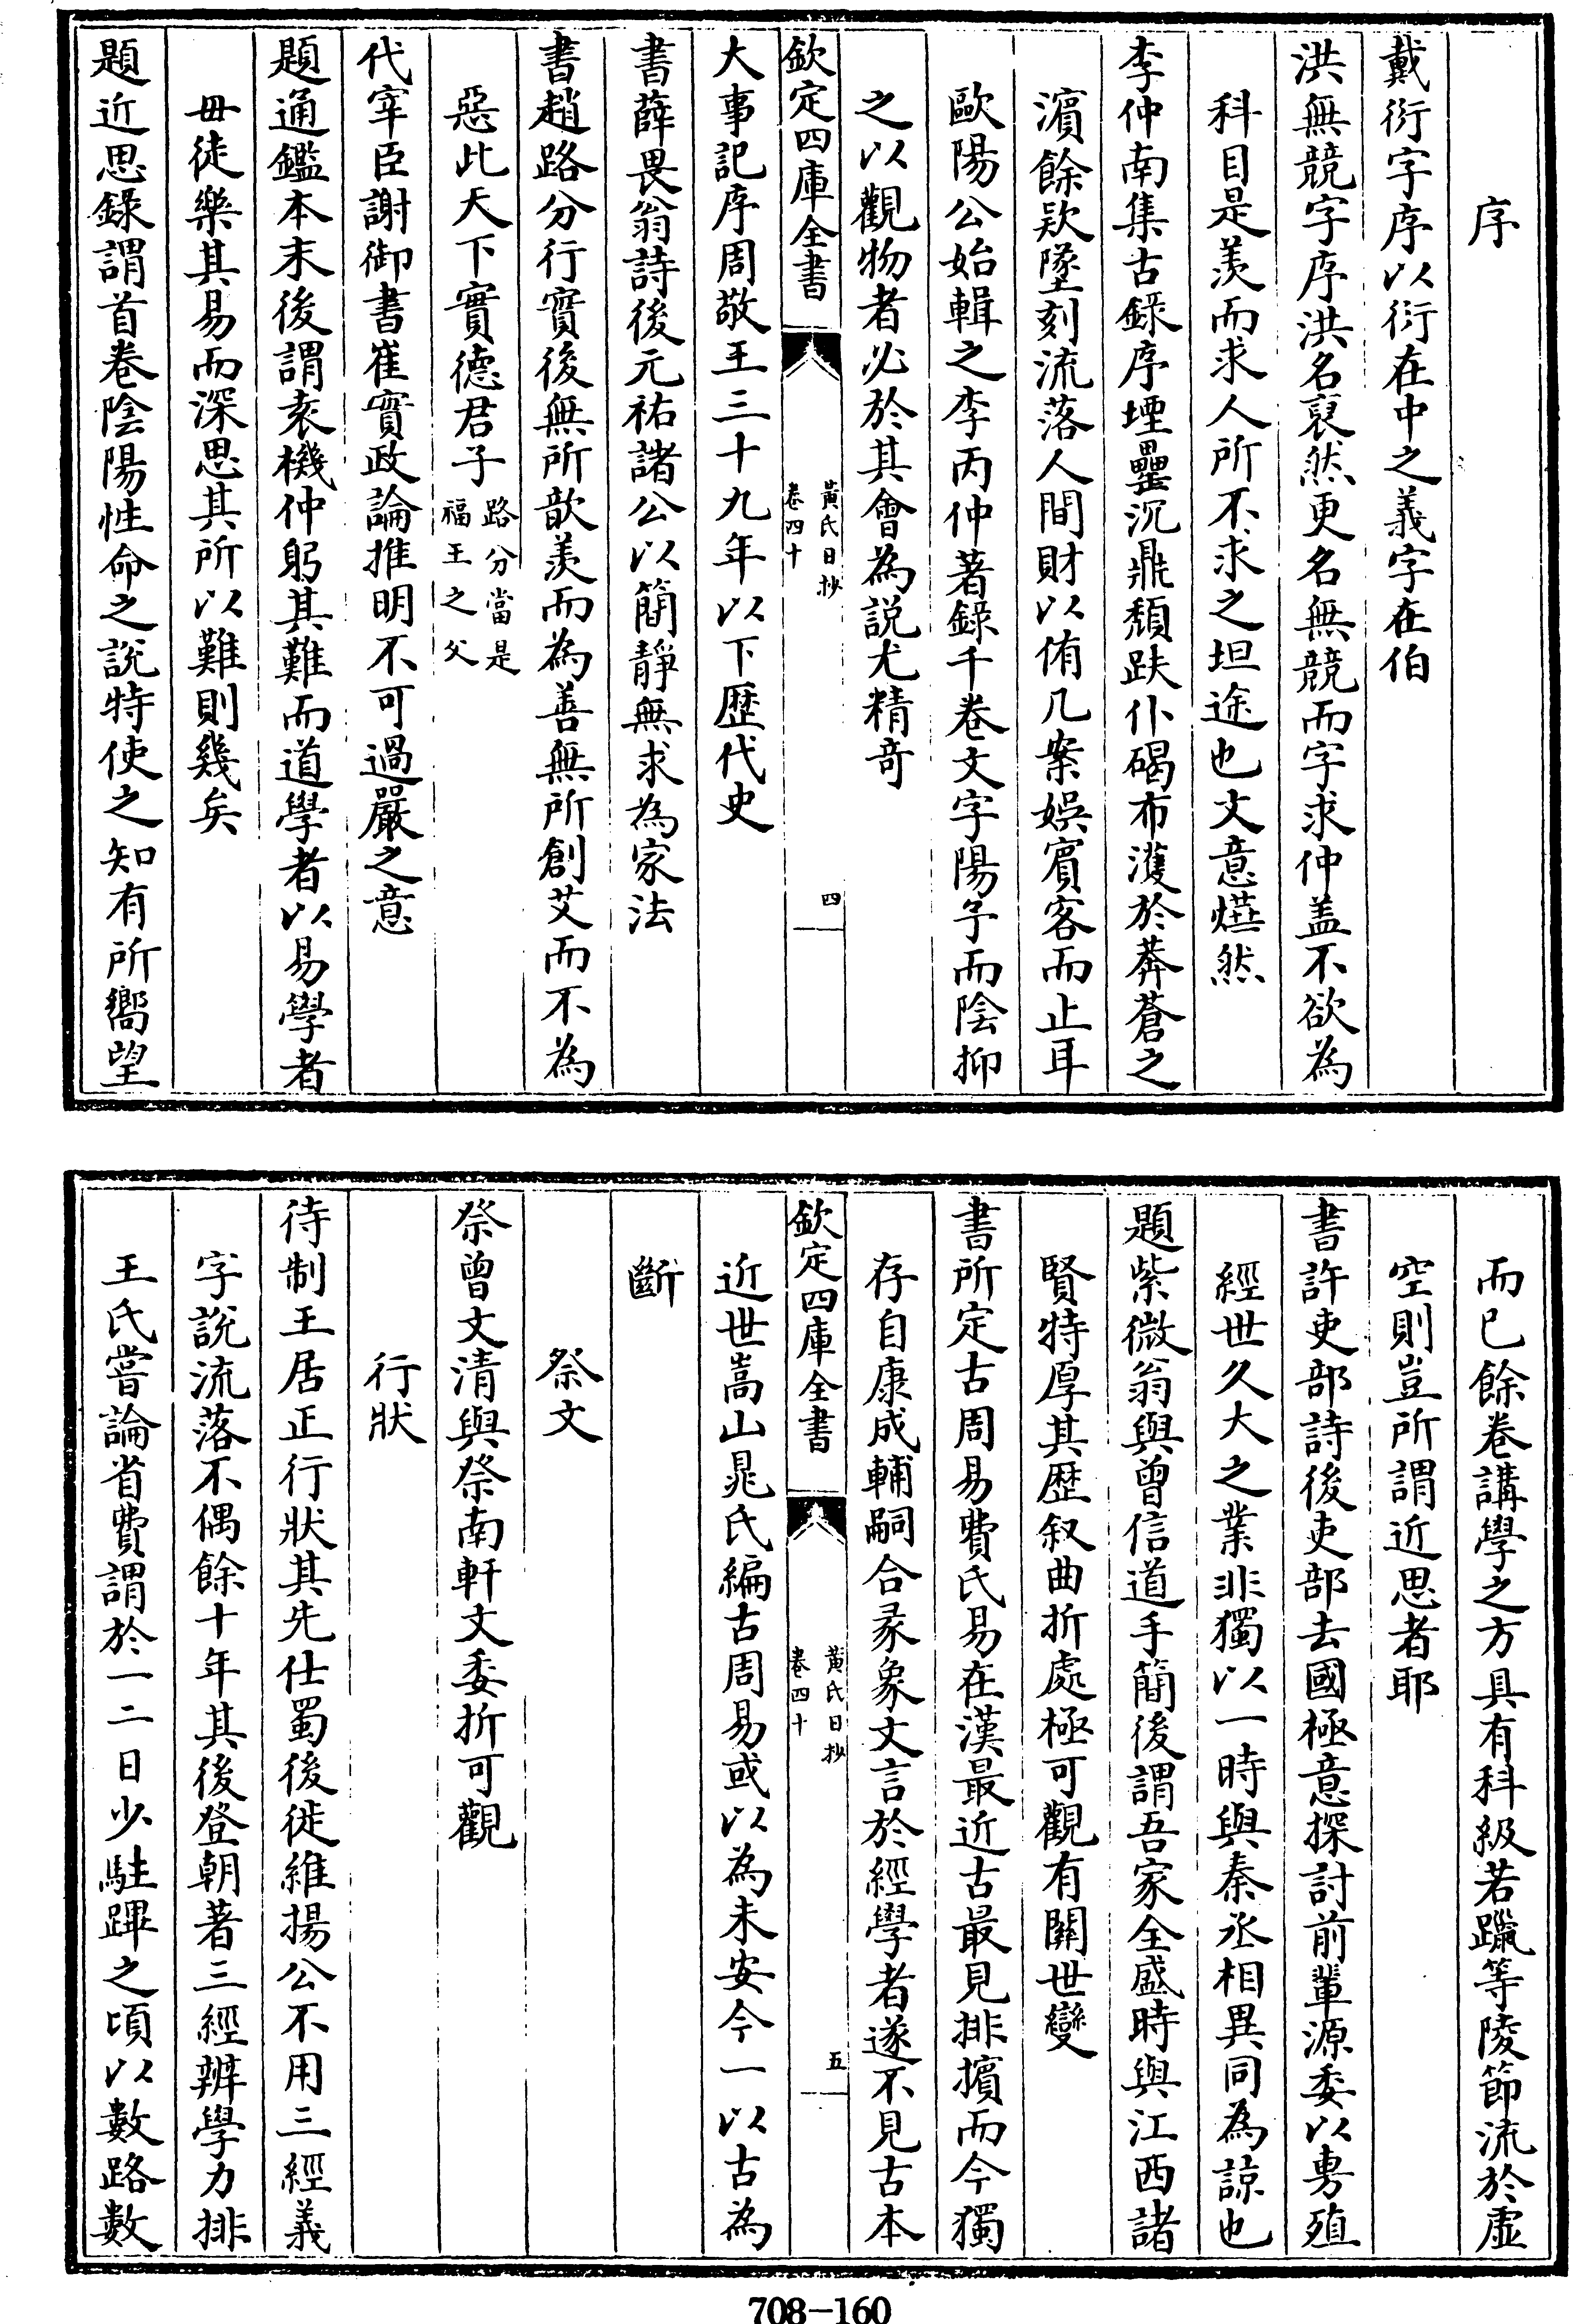 序
戴衍字序以衍在中之義字在伯
洪無競字序洪名裒然更名無競而字求仲盖不欲為
科目是羡而求人所不求之坦途也文意燁然
李仲南集古錄序堙罍沉鼎頹趺仆碣布濩於莽蒼之
濵餘欵墜刻流落人間財以侑几案娯賓客而止耳
歐陽公始輯之李丙仲著錄千卷文字陽予而陰抑
之以觀物者必於其會為説尤精奇
欽定四庫全書
黃氏日抄
卷四十
四
大事記序周敬王三十九年以下歴代史
書薛畏翁詩後元祐諸公以簡靜無求為家法
書趙路分行實後無所歆羡而為善無所創艾而不為
惡此天下實德君子路分當是
福王之父
代宰臣謝御書崔寔政論推明不可過嚴之意
題通鑑本末後謂袁機仲躬其難而道學者以易學者
毋徒樂其易而深思其所以難則幾矣
題近思錄謂首卷陰陽性命之説特使之知有所嚮望
而已餘卷講學之方具有科級若躐等陵節流於虛
空則豈所謂近思者耶
書許吏部詩後吏部去國極意探討前輩源委以専殖
經世久大之業非獨以一時與秦丞相異同為諒也
題紫微翁與曾信道手簡後謂吾家全盛時與江西諸
賢特厚其歴叙曲折處極可觀有闗世變
書所定古周易費氏易在漢最近古最見排擯而今獨
存自康成輔嗣合彖象文言於經學者遂不見古本
欽定四庫全書
黃氏日抄
卷四十
五
近世嵩山晁氏編古周易或以為未安今一以古為
斷
祭文
祭曾文清與祭南軒文委折可觀
行狀
待制王居正行狀其先仕蜀後徙維揚公不用三經義
字説流落不偶餘十年其後登朝著三經辨學力排
王氏嘗論省費謂於一二日少駐蹕之頃以數路數
708-160